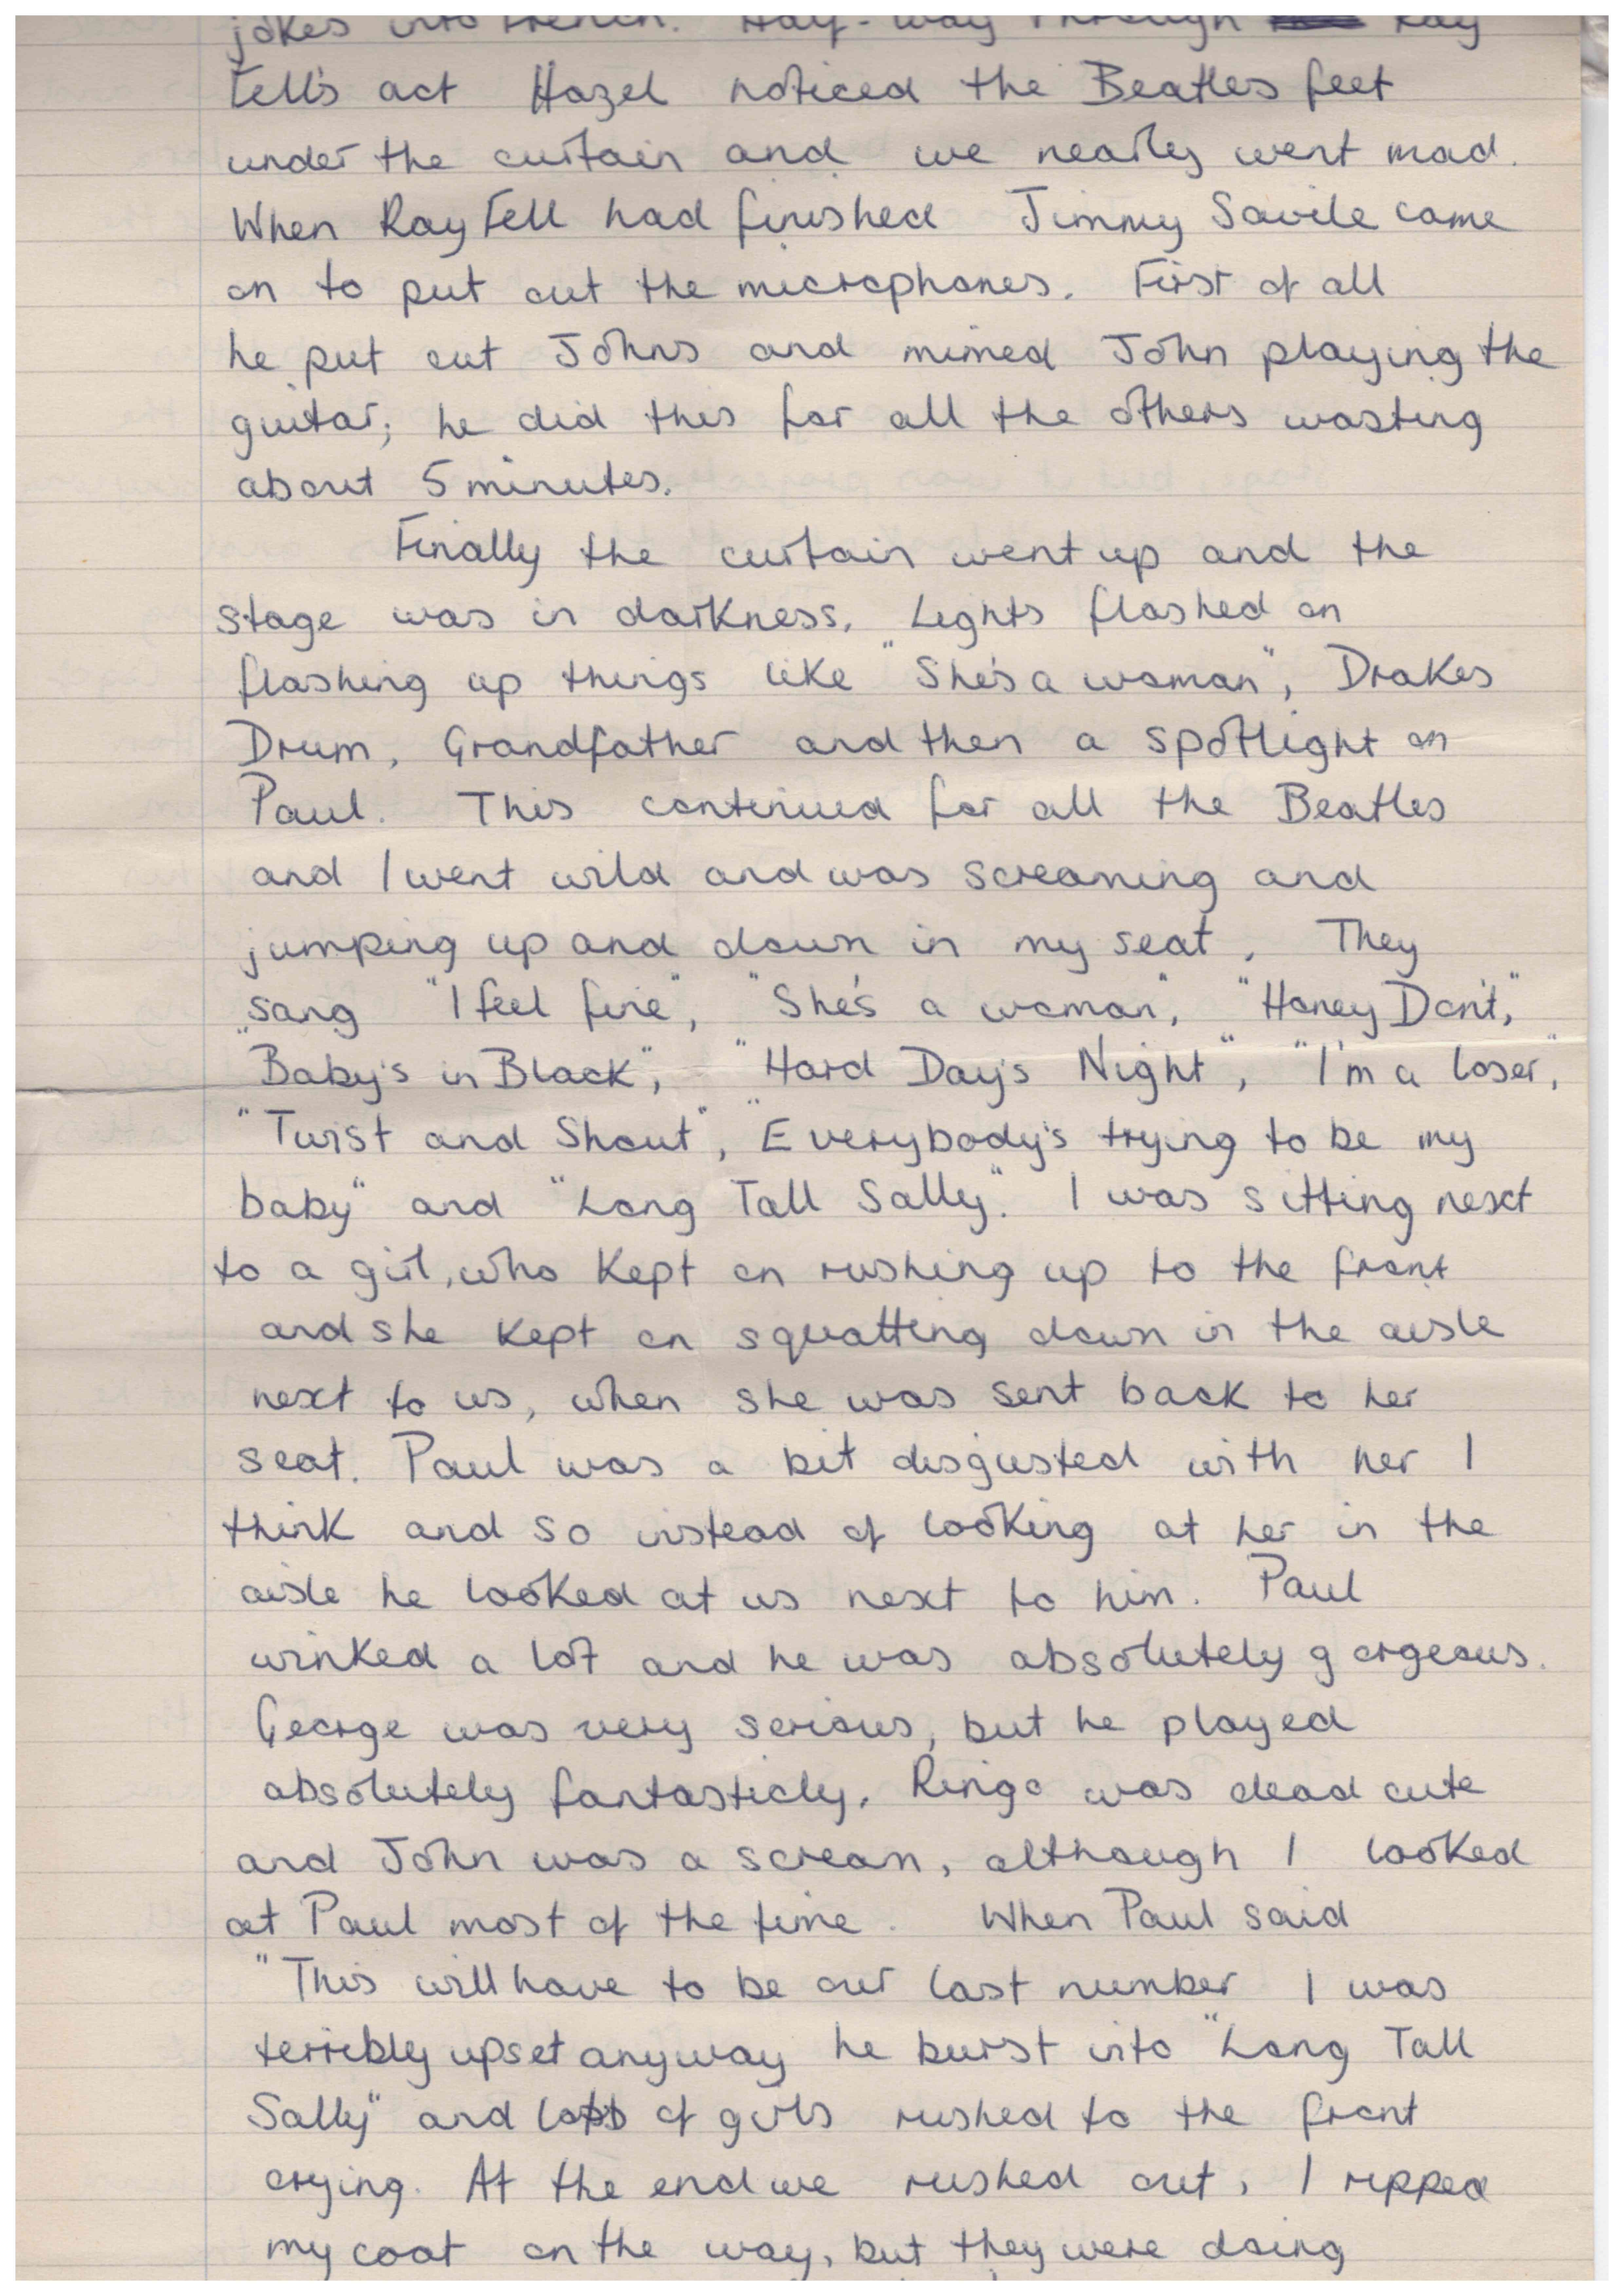 jokes into French. Half-way through Ray
Fell's act Hazel noticed the Beatles feet
under the curtain and we nearly went mad.
When Ray Fell had finished Jimmy Savile came
on to put out the microphones. First of all
he put out Johns and mimed John playing the
guitar; he did this for all the others wasting
about 5 minutes.
Finally the curtain went up and the
stage was in darkness. Lights flashed on
flashing up things like "She's a woman", Drakes
Drum, Grandfather and then a spotlight on
Paul. This continued for all the Beatles
and I went wild and was screaming and
jumping up and down in my seat. They
sang "I feel fine", "She's a woman", "Honey Don't,"
"Baby's in Black", "Hard Day's Night", "I'm a loser",
"Twist and Shout", "Everybody's trying to be my
baby" and "Long Tall Sally". I was sitting next
to a girl, who kept on rushing up to the front
and she kept on squatting down in the aisle
next to us, when she was sent back to her
seat. Paul was a bit disgusted with her I
think and so instead of looking at her in the
aisle he looked at us next to him. Paul
winked a lot and he was absolutely gorgeous.
George was very serious, but he played
absolutely fantasticly, Ringo was dead cute
and John was a scream, although I looked
at Paul most of the time. When Paul said
"This will have to be our last number I was
terribly upset anyway he burst into "Long Tall
Sally" and lots of girls rushed to the front
crying. At the end we rushed out, I ripped
my coat on the way, but they were doing